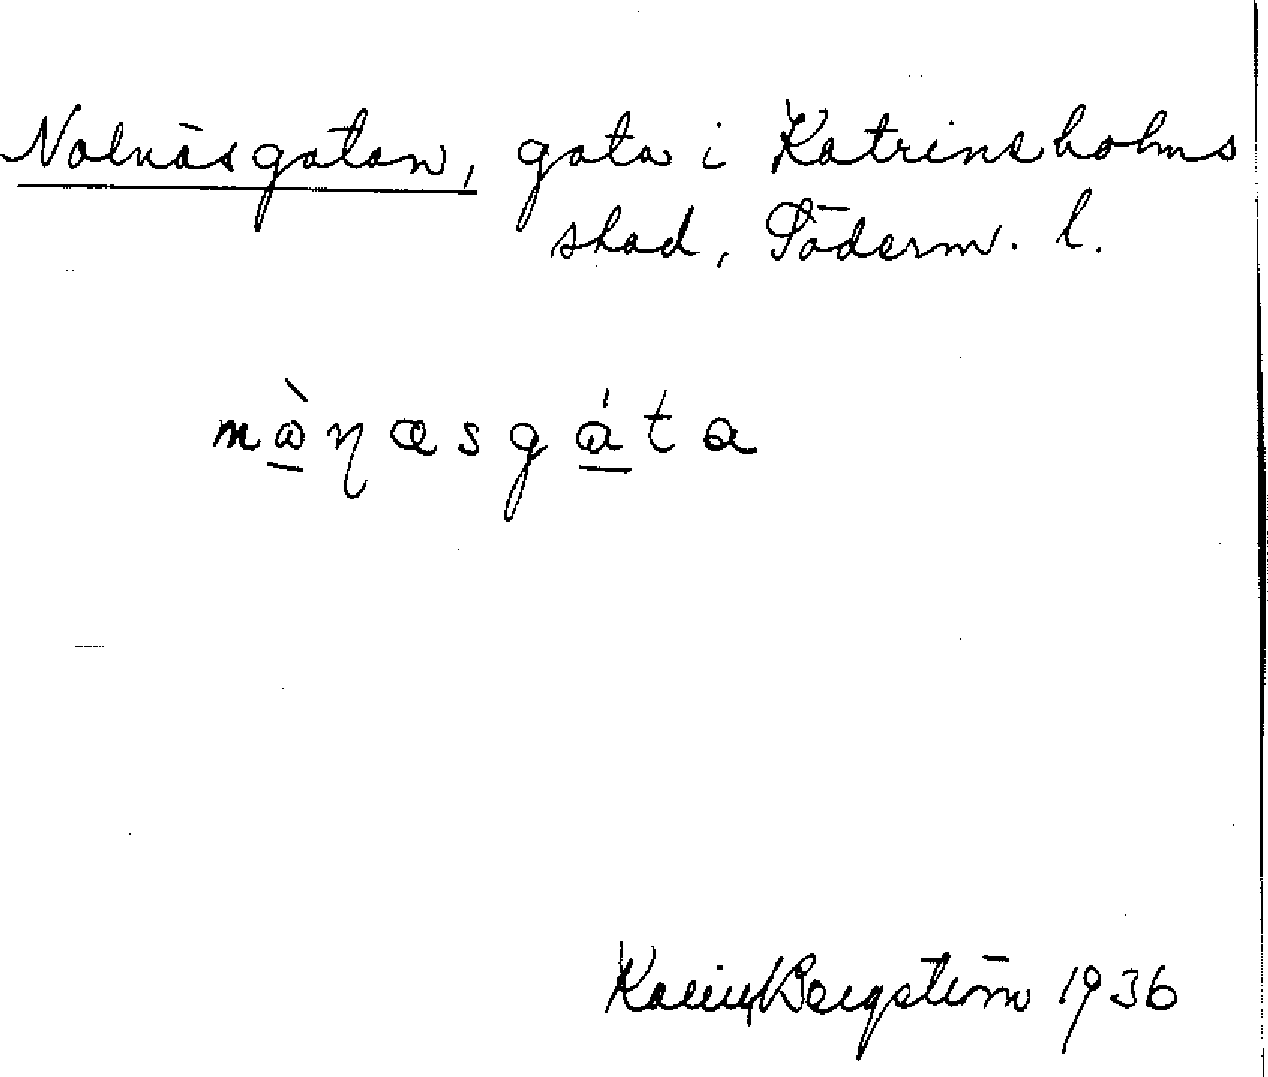 Nalnäsgatan, gata i Katrineholms
stad, Söderm. l.
nàŋæsgáta
Karin Bergström 1936